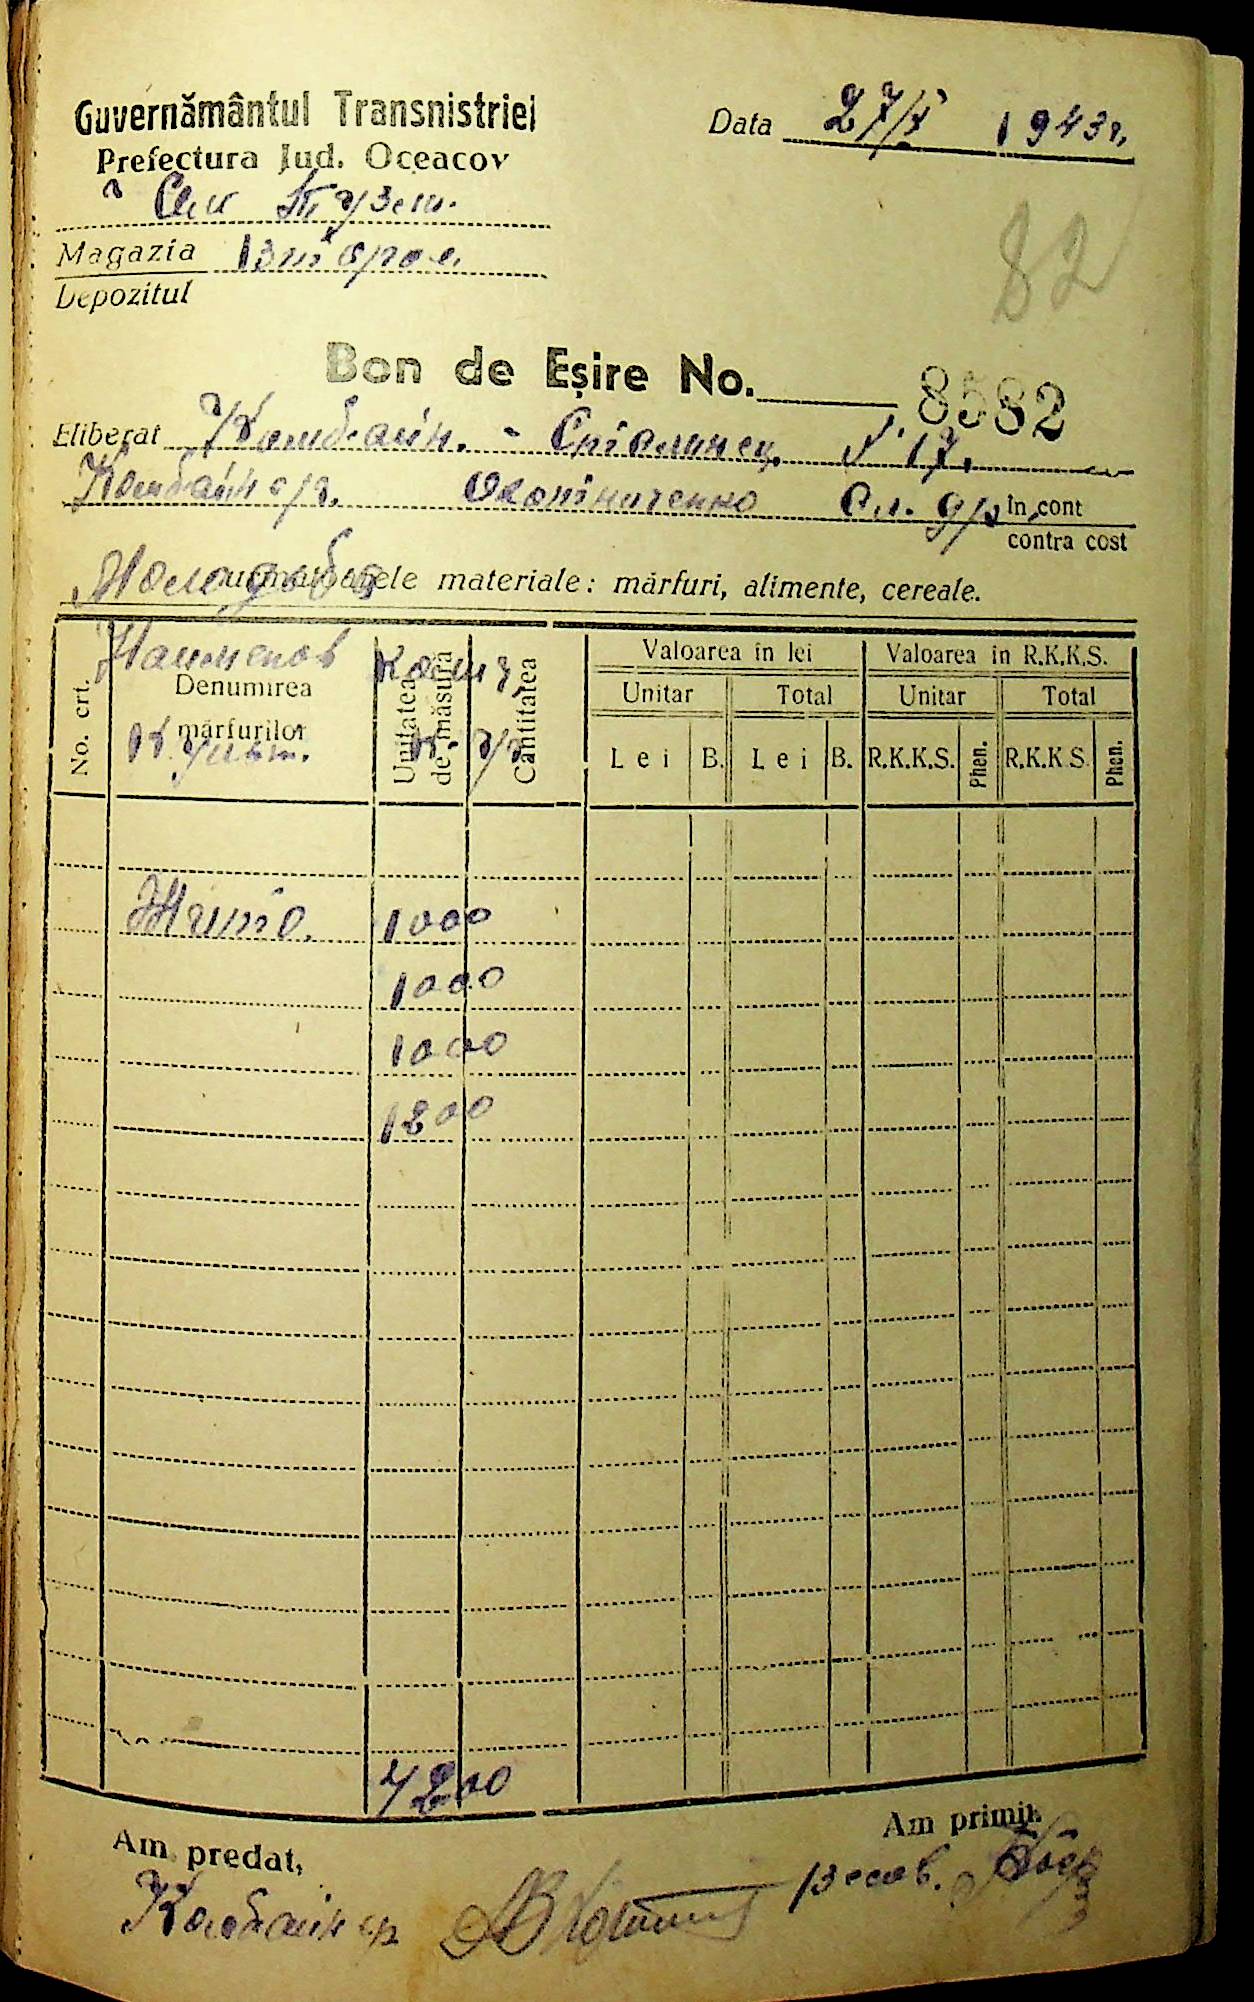 Guvernământul Transnistriei
Data 27/X 1943 г.
Prefectura Jud. Oceacov
Magazia
Depozitul
82
Bon de Eșire No. 8582
Eliberat Комбайн. - Сталинец № 17.
Комбайнер. în cont
contra cost
Молодьба
următoarele materiale: mărfuri, alimente, cereale.
No. crt.
Наименов
Denumirea
mărfurilor
Культ.
Unitatea de măsură
Колич.
К. гр.
Cantitatea
Valoarea în lei
Valoarea în R.K.K.S.
Unitar Total Unitar Total
Lei B. Lei B. R.K.K.S. Phen. R.K.K.S. Phen.
Жито. 1000
1000
1000
1200
4200
Am predat,
Am primit
Комбайнер
весов.